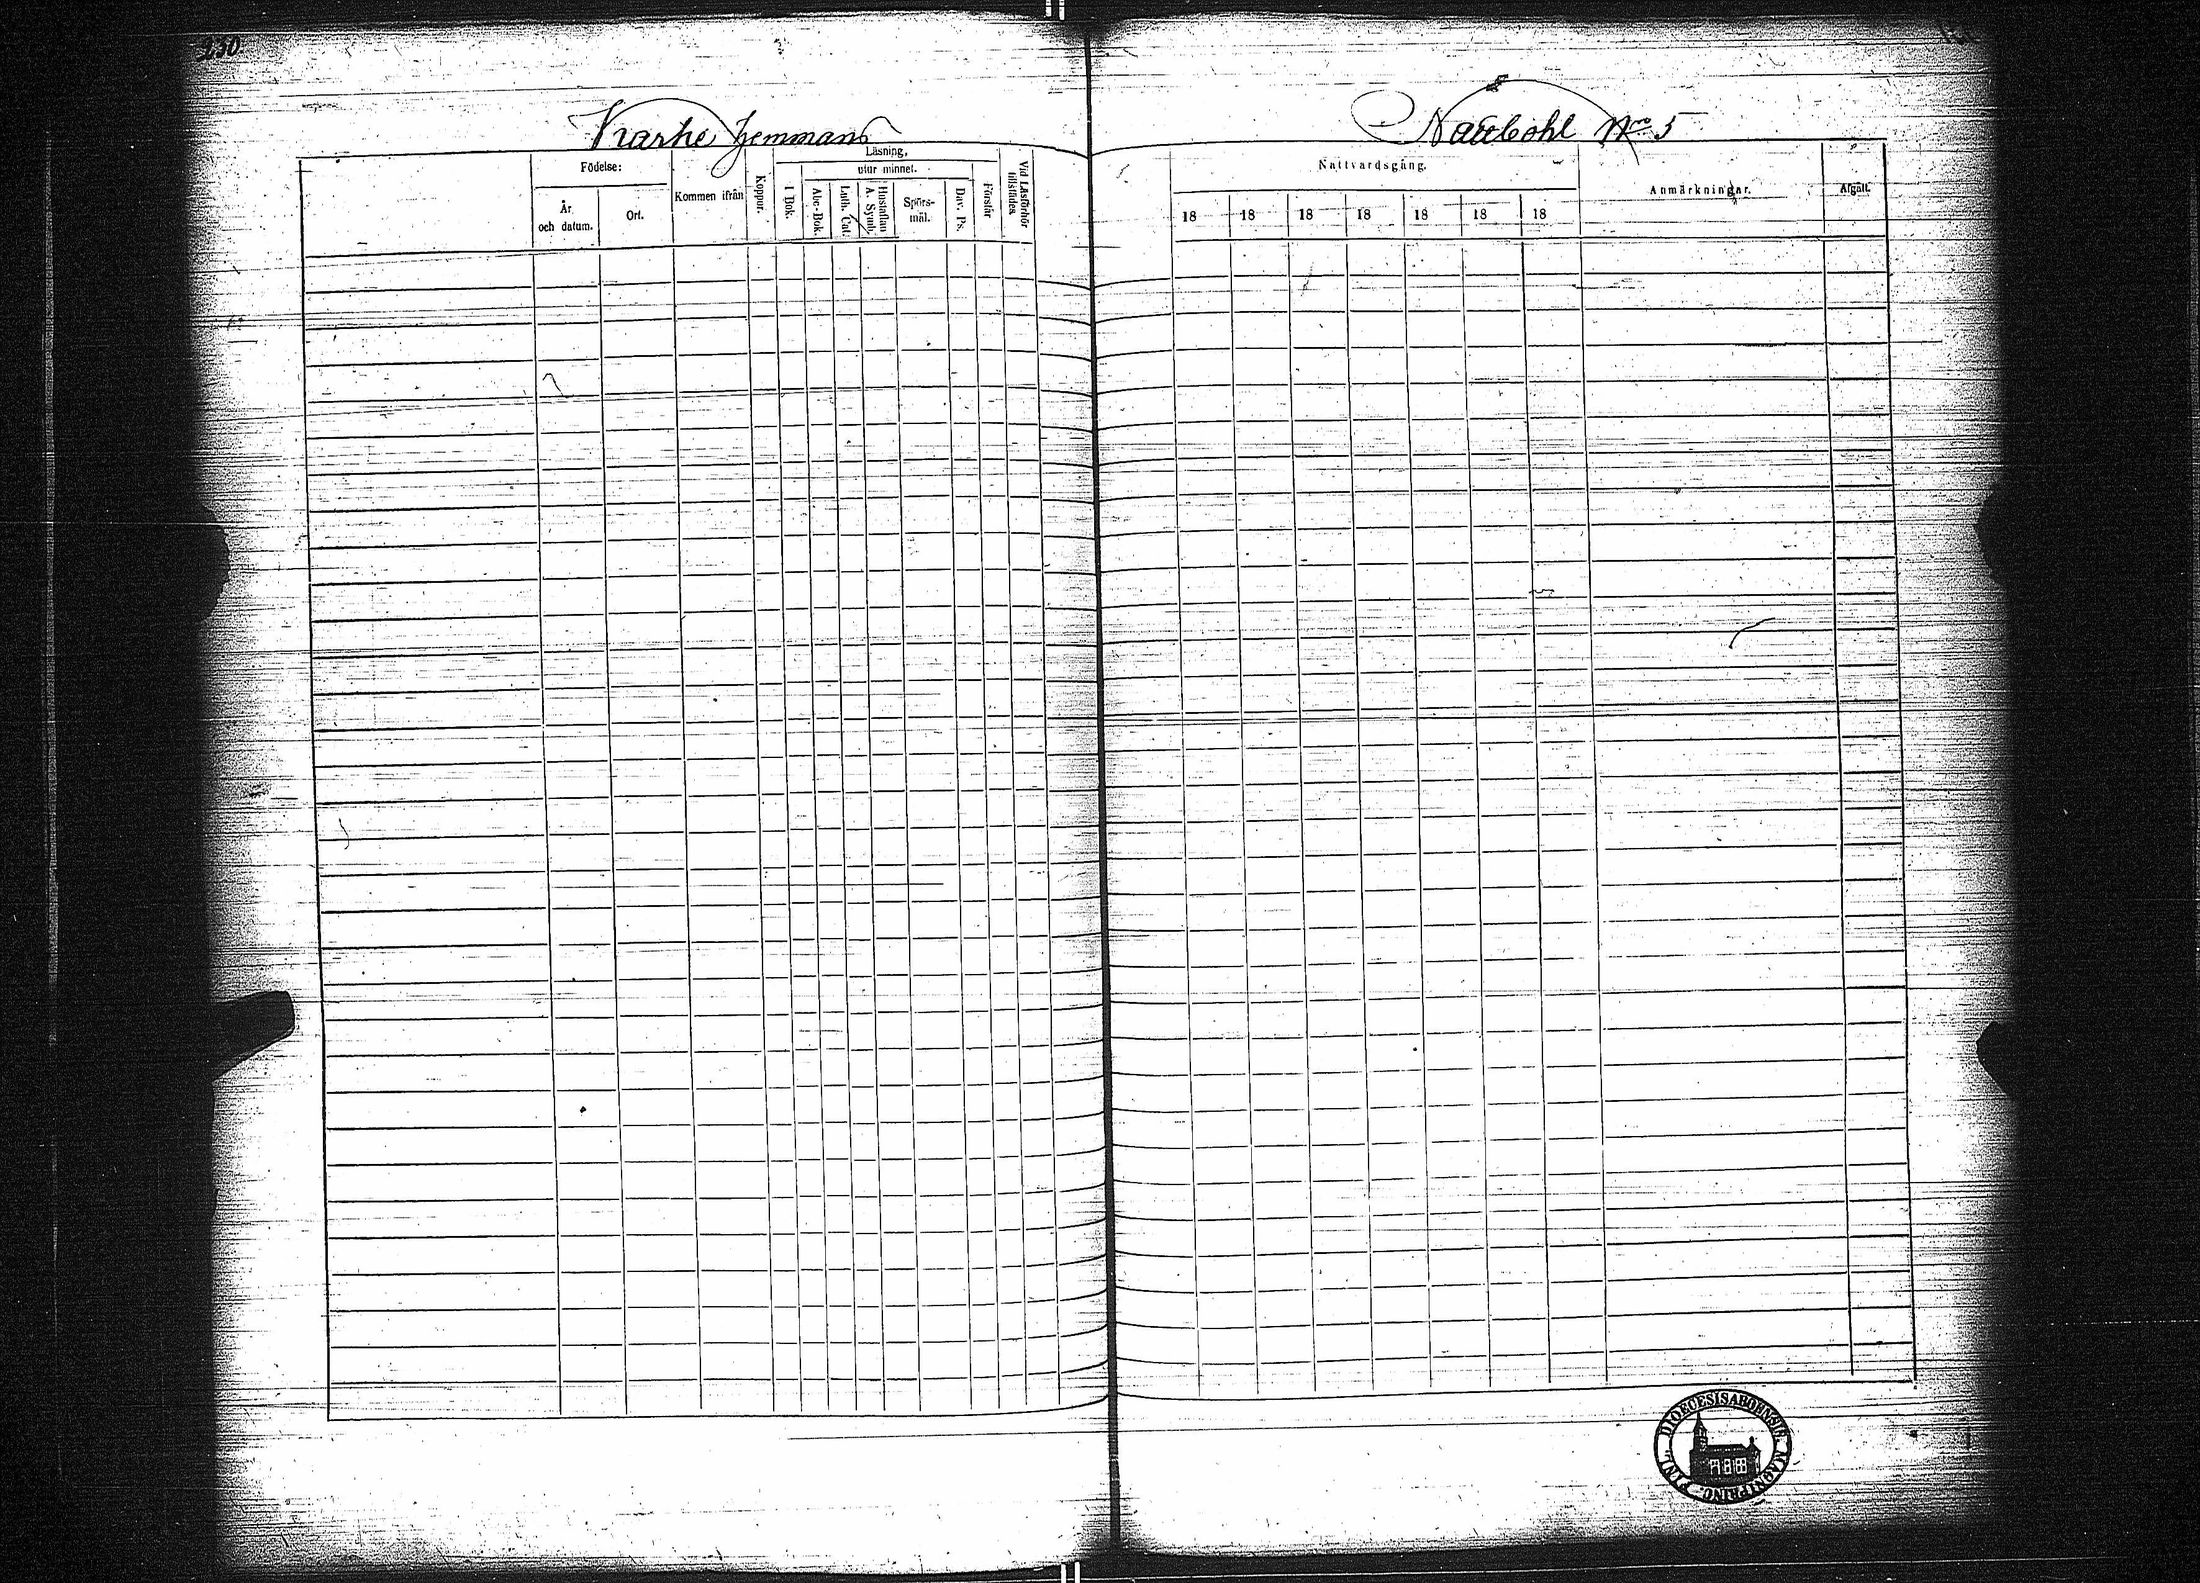 230
Karhe Hemmans
Nattbohl No 5
Födelse:
År
och datum.
Ort.
Kommen ifrån
Koppor.
Läsning,
utur minnet.
I Bok.
Abc-Bok.
Luth. Cat.
Hustaflan
A. Symb.
Spörs-
mål.
Dav. Ps.
Förstår
Vid Läsförhör
tillstädes.
Nattvardsgång.
18 18 18 18 18 18 18
Anmärkningar.
Afgått.